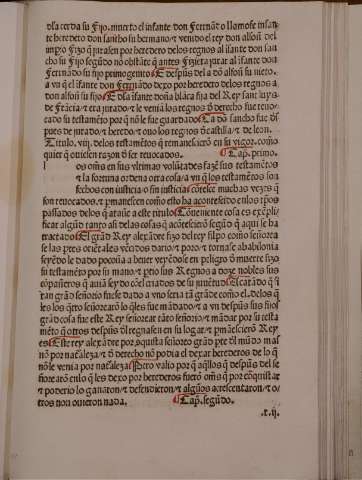 dsa cerda su fijo. muerto el infante don Fernãdo o llamose infan-
te heredero don sancho su hermano ⁊ venido el rey don alfoñ del
impio fizo q̃ jurasen por heredero delos regnos al ĩfante don san
cho su fijo segũdo no obstãte q̃ antes fiziera jurar al ĩfante don
Fernãdo su fijo primogenito Edespues del a dõ alfoñ su nieto.
a vn q̃ el infante don Fernãdo dexo por heredero delos regnos a
don alfoñ su fijo Edsa ĩfante doña blãca fija del Rey sant luys
de Frãcia ⁊ era jurado ⁊ le veniã los regnos ⁊ derecho fue reuo-
cado su testamẽto por q̃ nõ le fue guardado Ca dõ sancho fue ds
pues de jurado ⁊ heredo ⁊ ouo los regnos de castilla ⁊ de leon.
Titulo. viij. delos testamẽtos q̃ remanescierõ en su vigor. como
quier q̃ ouiesen razon de ser reuocados. Cap. primo.
os omẽs en sus vltimas volũtades fazẽ sus testamẽtos
⁊ la fortuna ordena otra cosa ⁊ a vn q̃ los testamẽtos son
fechos con justicia o sin justicia contesce muchas vezes q̃
son reuocados. ⁊ pmanescen como esto ha acontescido enlos tpos
passados delos q̃ atañe a este titulo Conueniente cosa es exẽpli
ficar algũd tanto así delas cosas q̃ acõtescierõ segũd q̃ aqui se ha
tractado El grãd Rey alexãdre fijo del rey filpo como señorea
se las ptes oriẽtales vẽdos dario ⁊ poro ⁊ tornase a babilonia
seyẽdo le dado poçoña a beuer veyẽdose en peligro de muerte fizo
su testamẽto por su mano ⁊ ptio sus Regnos a doze nobles sus
cõpañeros q̃ auiã seydo cõel criados de su juuẽtud Ecatãdo q̃ si
tan grãd señorio fuese dado a vno seria tã grãde como el. delos q̃
les los q̃tro señorearõ lo q̃ les fue mãdado ⁊ a vn despues sus fijos
grãd cosa fue este Rey señorear tãto señorio ⁊ mãdar por su testa
mẽto q̃ otros despues del regnasen en su lugar ⁊ pmãescierõ Rey
es Este rey alexãdre por cõquista señoreo grãd pte del mũdo mas
nõ por naturaleza ⁊ de derecho nõ podia el dexar herederos de lo q̃
nõ le venia por naturaleza Pero valio por q̃ aq̃llos q̃ despues del se
ñorearõ enlo q̃ les dexo por herederos fuerõ omẽs q̃ por cõquistar
⁊ poderio lo ganaron ⁊ defendieron ⁊ algũos acrescentaron ⁊ o-
tros non ouieron nada. Cap. segũdo.
r.ij.